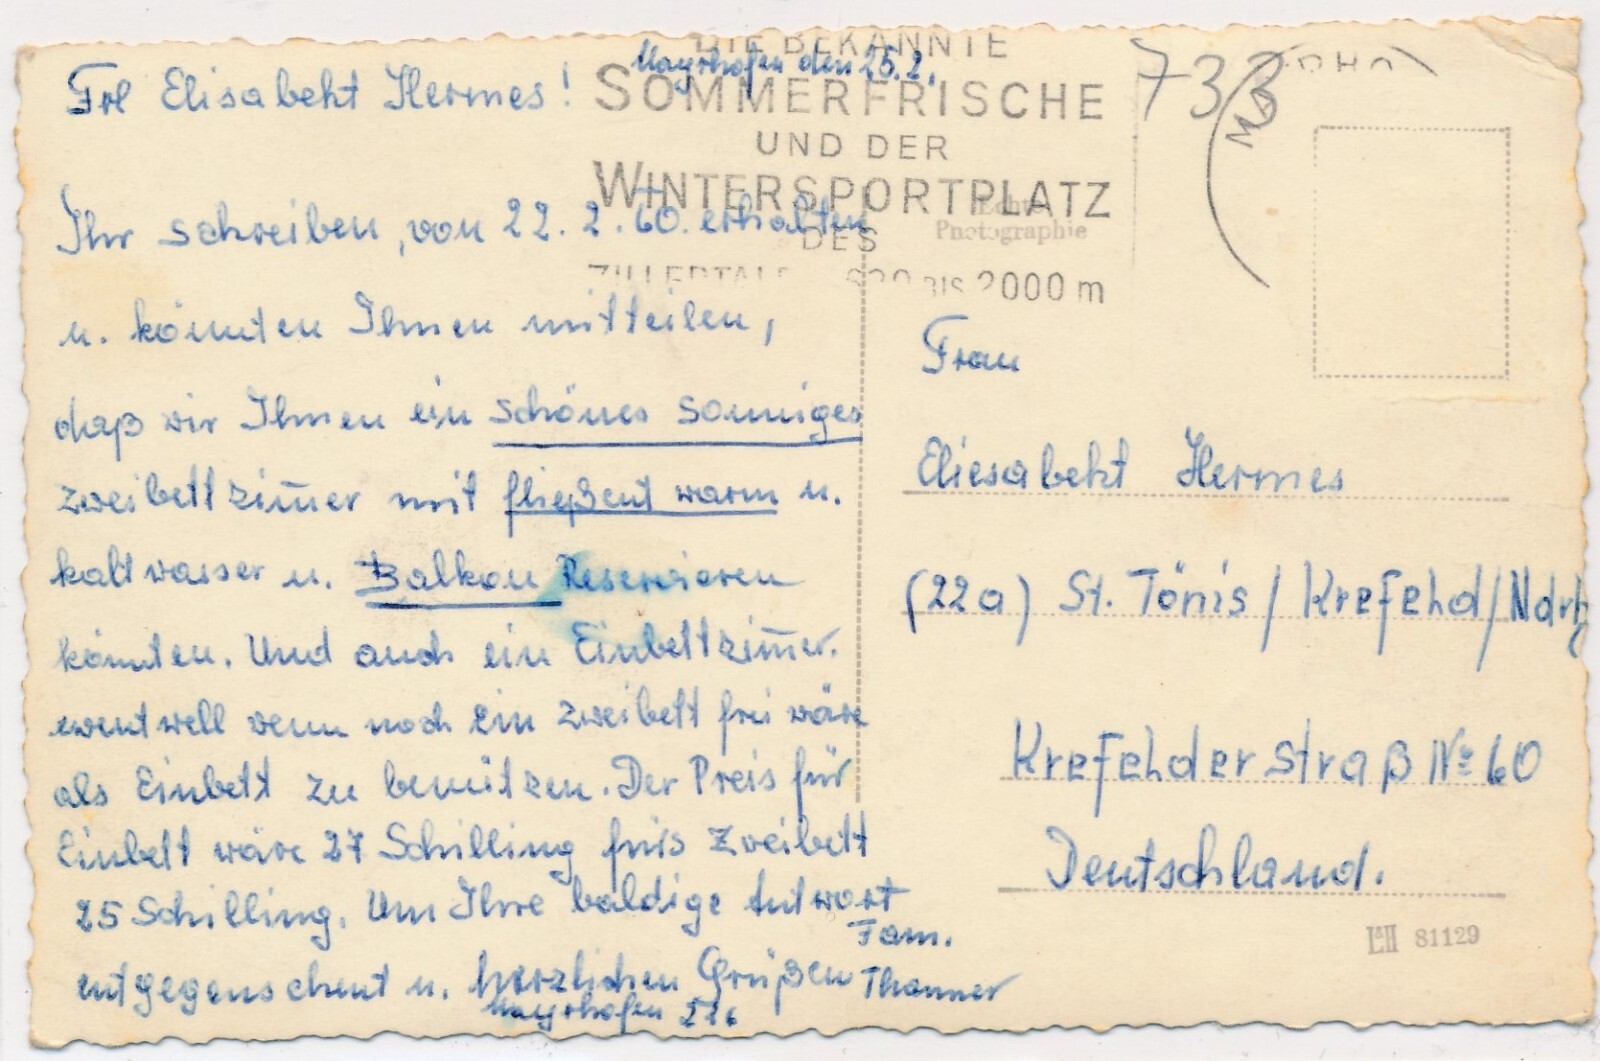 Mayrhofen den 25.2.
Frl Elisabeht Hermes!
Ihr schreiben, von 22.2.60. erhalten
u. könnten Ihnen mitteilen,
daß wir Ihnen ein schönes sonniges
zweibettzim̄er mit fließent warm u.
kaltwasser u. Balkon Reservieren
könnten. Und auch ein Einbettzim̄er.
eventwell wenn noch ein zweibett frei wäre
als Einbett zu benützen. Der Preis für
Einbett wäre 27 Schilling fürs Zweibett
25 Schilling. Um Ihre baldige Antwort
entgegensehent u. herzlichen Grüßen
Fam.
Thanner
Mayrhofen
DIE BEKANNTE
SOMMERFRISCHE
UND DER
WINTERSPORTPLATZ
DES
ZILLERTALES 630 BIS 2000 m
733
Echte
Photographie
Frau
Eliesabeht Hermes
(22a) St. Tönis / Krefehd/
Krefehderstraß № 60
Deutschland.
81129